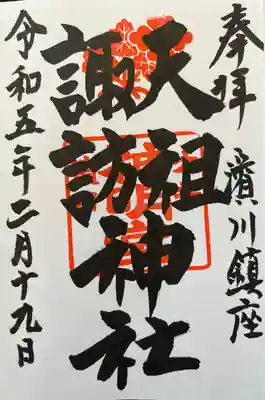 奉拝
濱川鎮座
天祖神社
諏訪
令和五年二月十九日